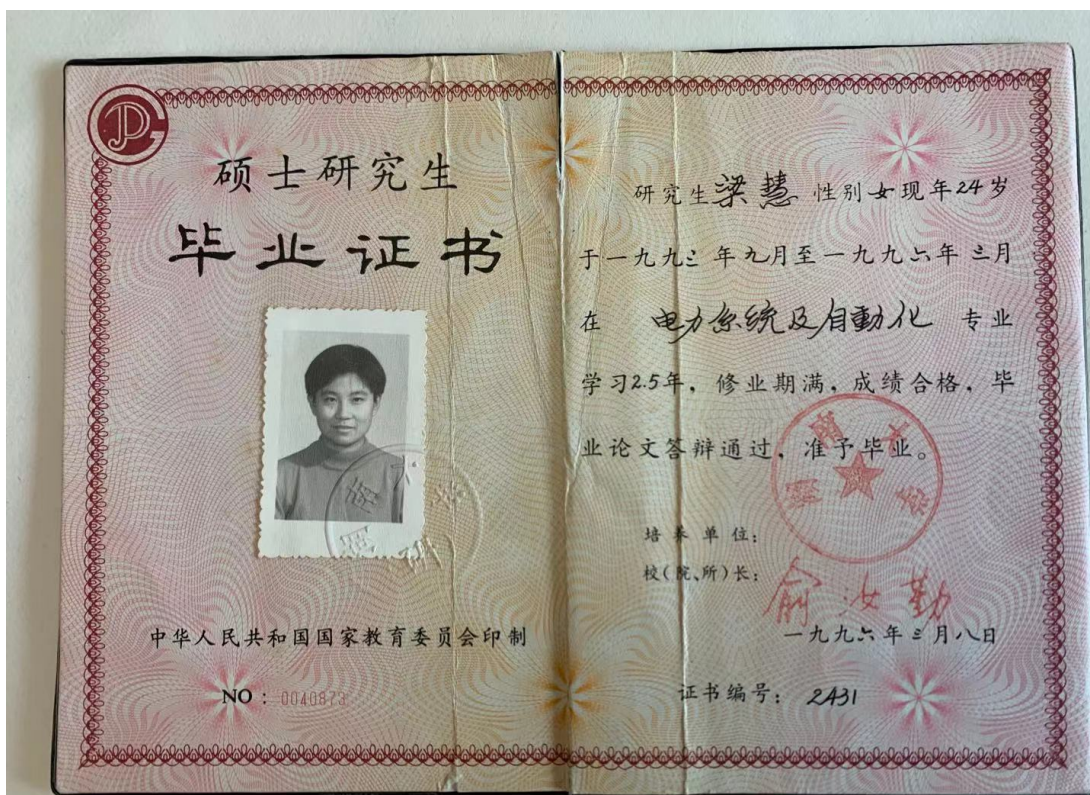 硕士研究生
毕业证书
中华人民共和国国家教育委员会印制
NO：0040873
研究生梁慧 性别女现年24岁
于一九九三年九月至一九九六年三月
在 电力系统及自動化 专业
学习2.5年，修业期满，成绩合格，毕
业论文答辩通过，准予毕业。
湖南大学
培养单位：
校(院、所)长：
俞汝勤
一九九六年三月八日
证书编号：2431